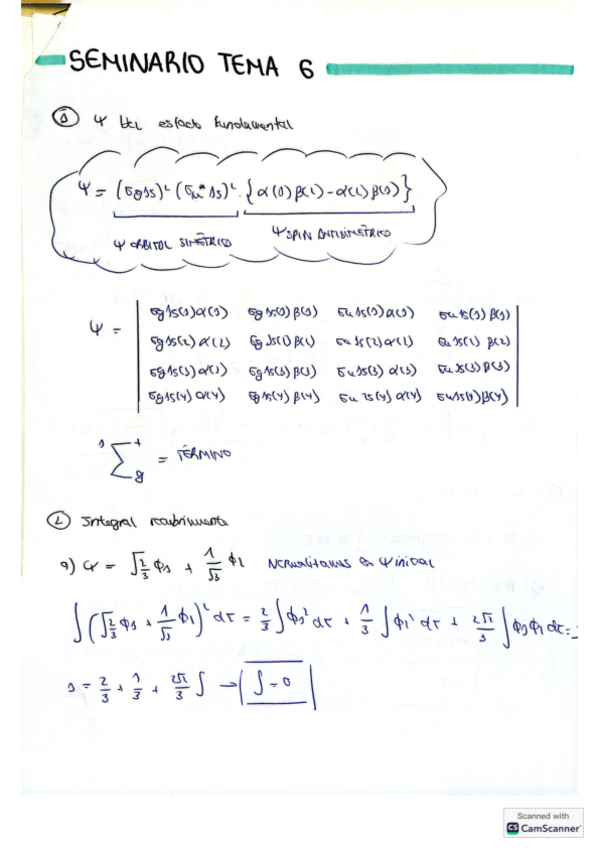 SEMINARIO TEMA 6
① Ψ del estado fundamental
Ψ = (σg1s)² (σu*1s)² · {α(1)β(2) - α(2)β(1)}
Ψ ORBITAL SIMÉTRICO
Ψ SPIN ANTISIMÉTRICO
Ψ =
σg1s(1)α(1) σg1s(1)β(1) σu1s(1)α(1) σu1s(1)β(1)
σg1s(2)α(2) σg1s(2)β(2) σu1s(2)α(2) σu1s(2)β(2)
σg1s(3)α(3) σg1s(3)β(3) σu1s(3)α(3) σu1s(3)β(3)
σg1s(4)α(4) σg1s(4)β(4) σu1s(4)α(4) σu1s(4)β(4)
¹Σg⁺ = TÉRMINO
② Integral recubrimiento
a) Ψ = √2/3 ϕ1 + 1/√3 ϕ2 Normalizamos la Ψ inicial
∫(√2/3 ϕ1 + 1/√3 ϕ2)² dτ = 2/3 ∫ϕ1² dτ + 1/3 ∫ϕ2² dτ + 2√2/3 ∫ϕ1ϕ2 dτ = 1
1 = 2/3 + 1/3 + 2√2/3 ∫ → ∫ = 0
Scanned with
CS CamScanner